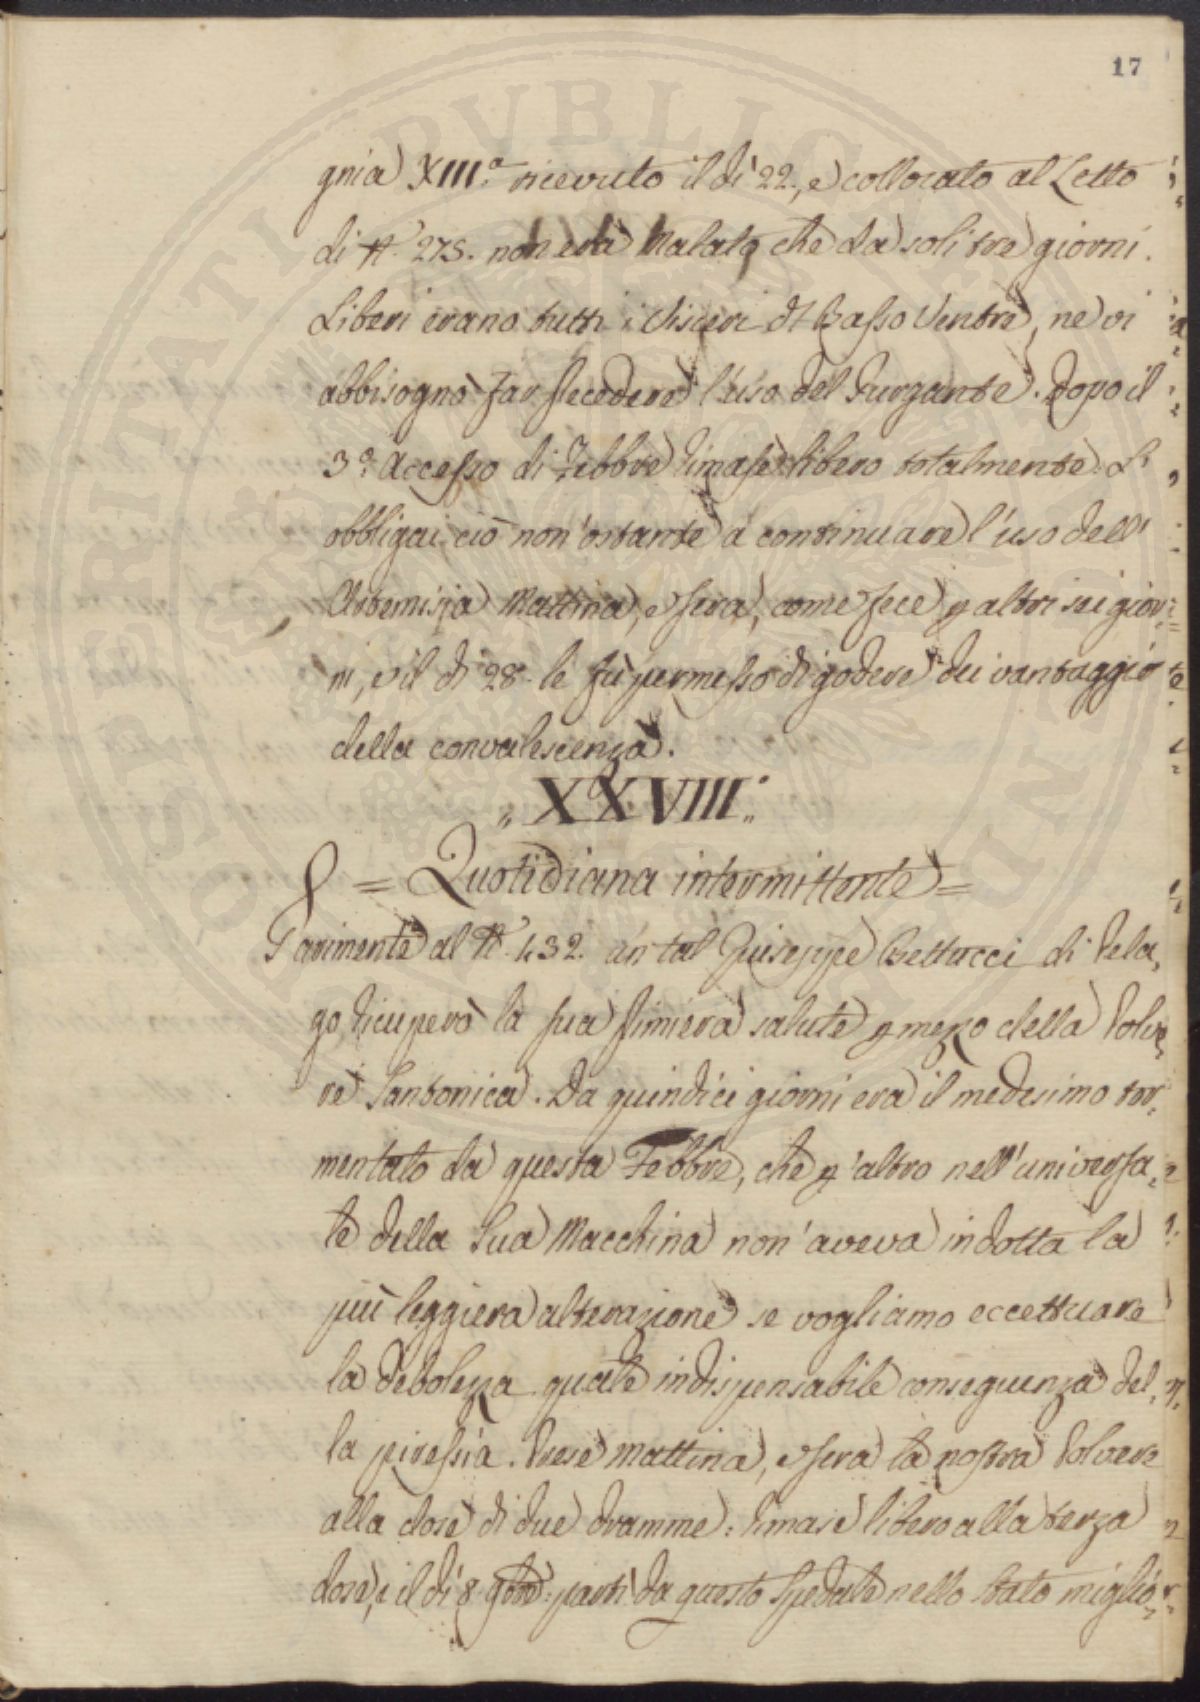 17
gnia XIII.ª ricevuto il dì 22., e collocato al Letto
di N. 275. non era Malato che da soli tre giorni.
Liberi erano tutti i Visceri di Basso Ventre, ne vi
abbisognò far precedere l'uso del Purgante. Dopo il
3.º Accesso di Febbre rimase libero totalmente. L'
obbligai ciò non'ostante a continuare l'uso dell'
Artemisia Mattina, e sera, come fece p altri sei gior=
ni, e il dì 28. le fù permesso di godere dei vantaggi
della convalescenza.
„ XXVIII.
= Quotidiana intermittente =
Parimente al N. 432. un tal Giuseppe Bettucci di Pela,
go, ricuperò la sua primiera salute p mezzo della Polve,
re Santonica. Da quindici giorni era il medesimo tor,
mentato da questa Febbre, che p altro nell'universa,
le della Sua Macchina non'aveva indotta la
più leggiera alterazione se vogliamo eccettuare
la debolezza quale indispensabile conseguenza del,
la piressia. Prese mattina, e sera la nostra Polvere
alla dose di due dramme: rimase libero alla terza
dose, e il dì 8. 9bre: partì da questo Spedale nello stato miglio,